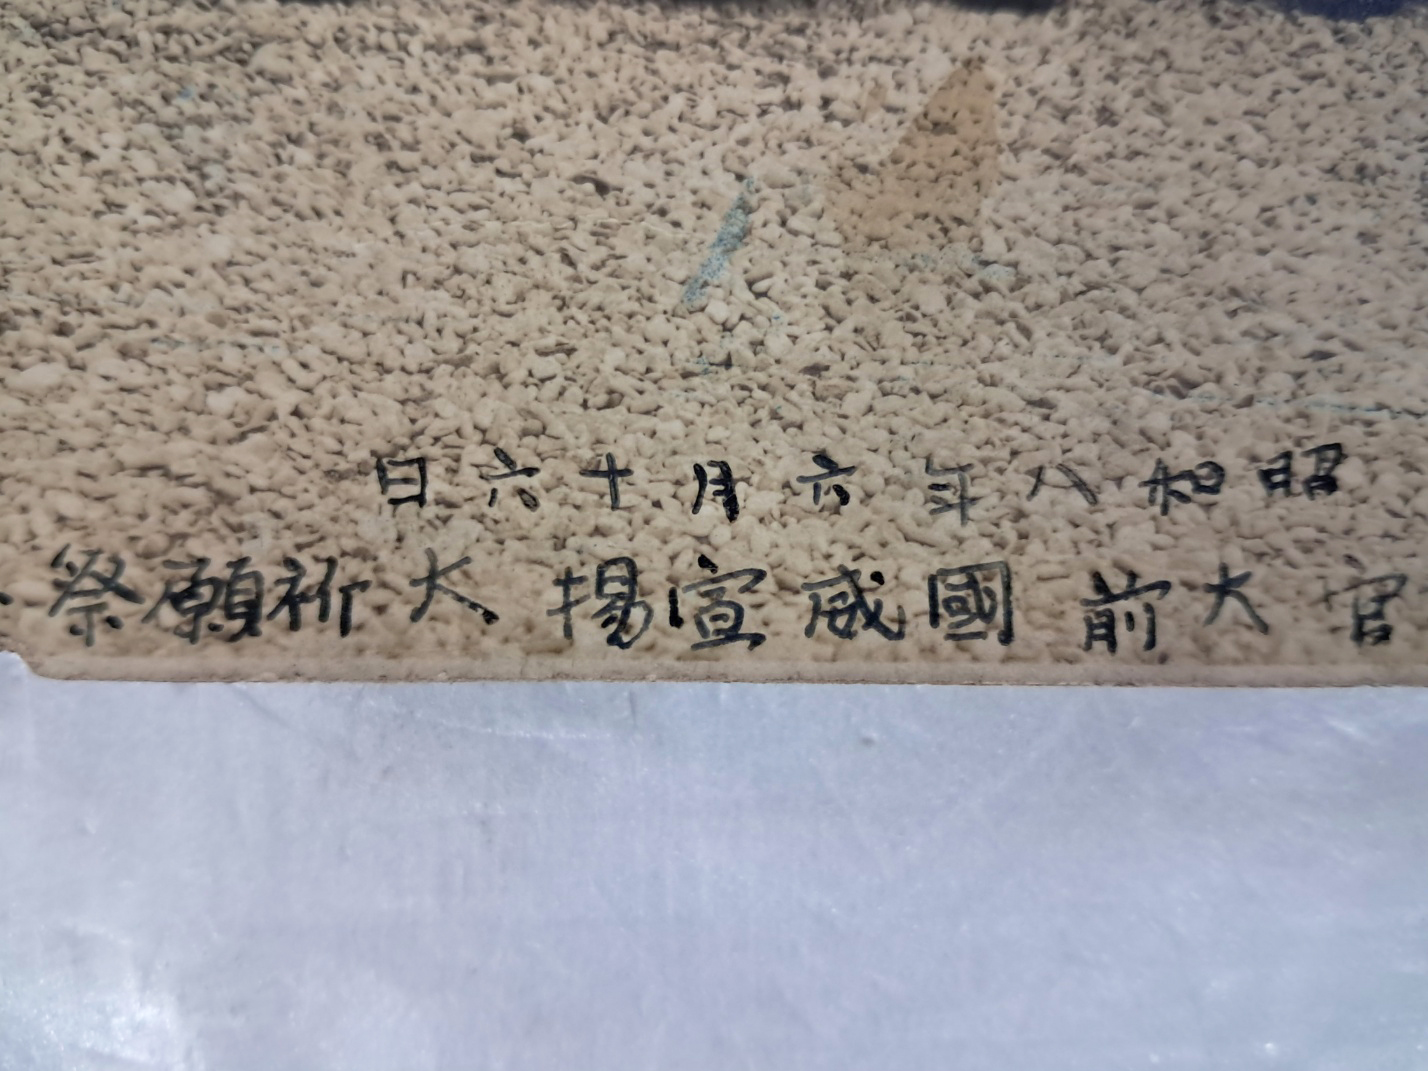 昭和八年六月十六日
宮大前國威宣揚大祈願祭